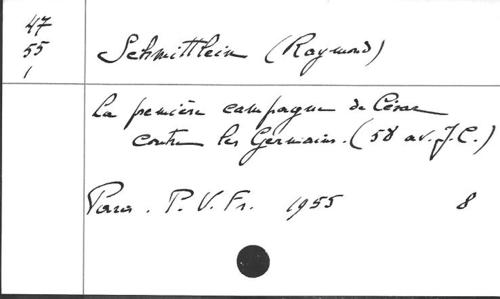 47
55
1
Schmittlein (Raymond)
La première campagne de César
contre les Germains. (58 av. J.C.)
Paris. P. V. Fr. 1955 8